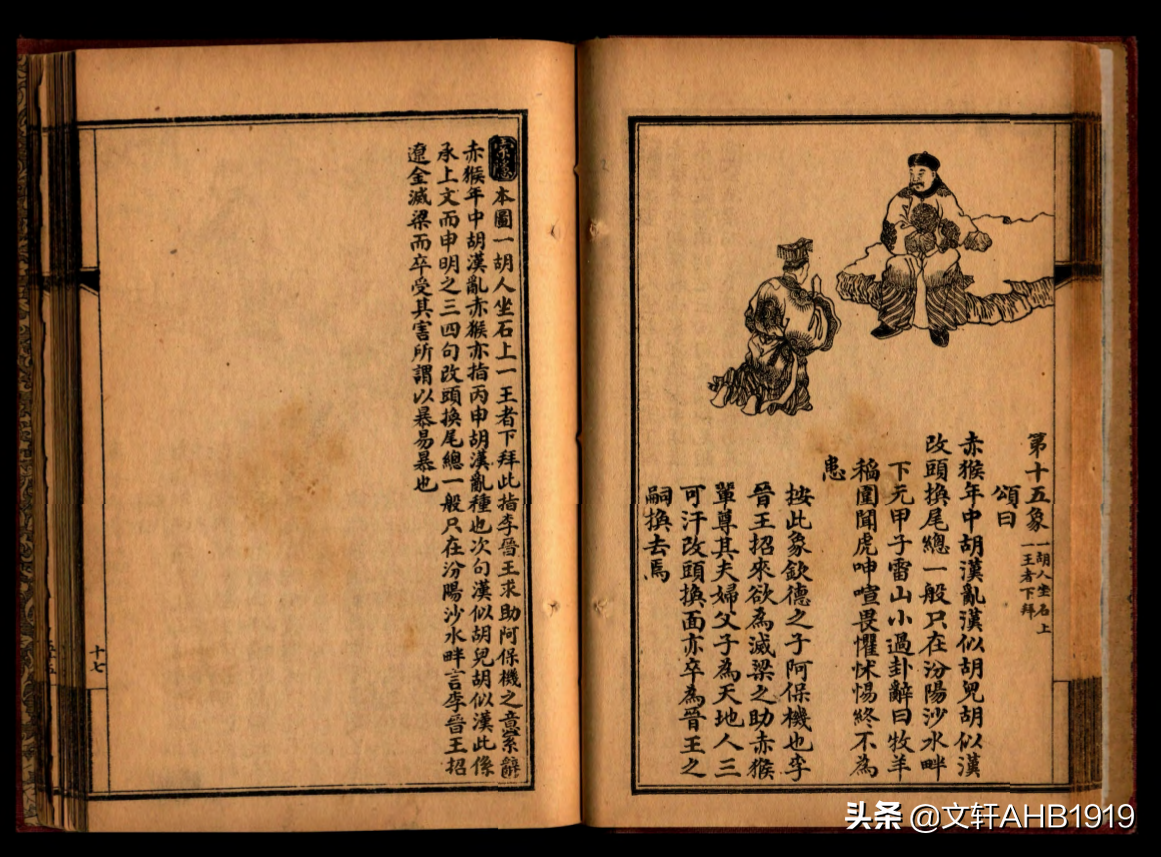 第十五象
一胡人坐石上
一王者下拜
頌曰
赤猴年中胡漢亂漢似胡兒胡似漢
改頭換尾總一般只在汾陽沙水畔
下元甲子雷山小過卦辭曰牧羊
稻圍聞虎呻喧畏懼怵惕終不為
患
按此象欽德之子阿保機也李
晉王招來欲為滅梁之助赤猴
輩尊其夫婦父子為天地人三
可汗改頭換面亦卒為晉王之
嗣換去焉
本圖一胡人坐石上一王者下拜此指李晉王求助阿保機之意繫辭
赤猴年中胡漢亂赤猴亦指丙申胡漢亂種也次句漢似胡兒胡似漢此係
承上文而申明之三四句改頭換尾總一般只在汾陽沙水畔言李晉王招
遼金滅梁而卒受其害所謂以暴易暴也
十七
头条 @文轩AHB1919